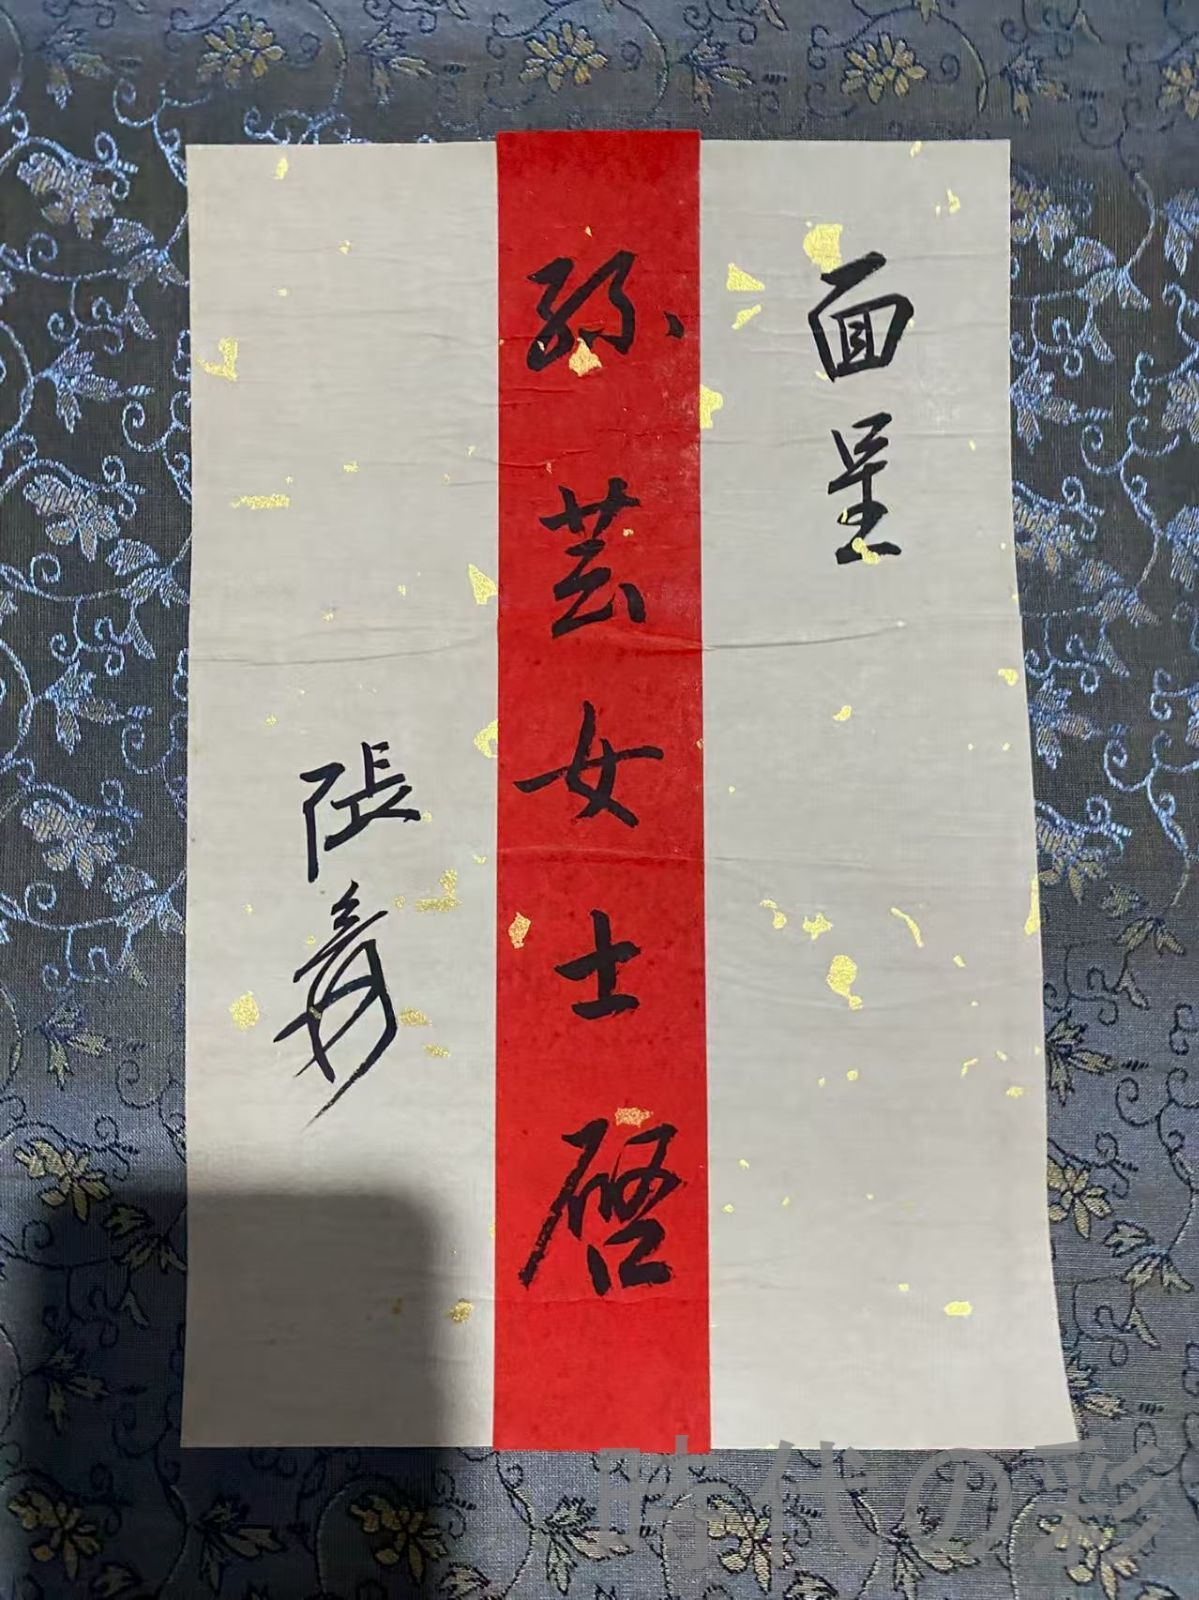 面呈
孫芸女士啓
張爰
時代の彩